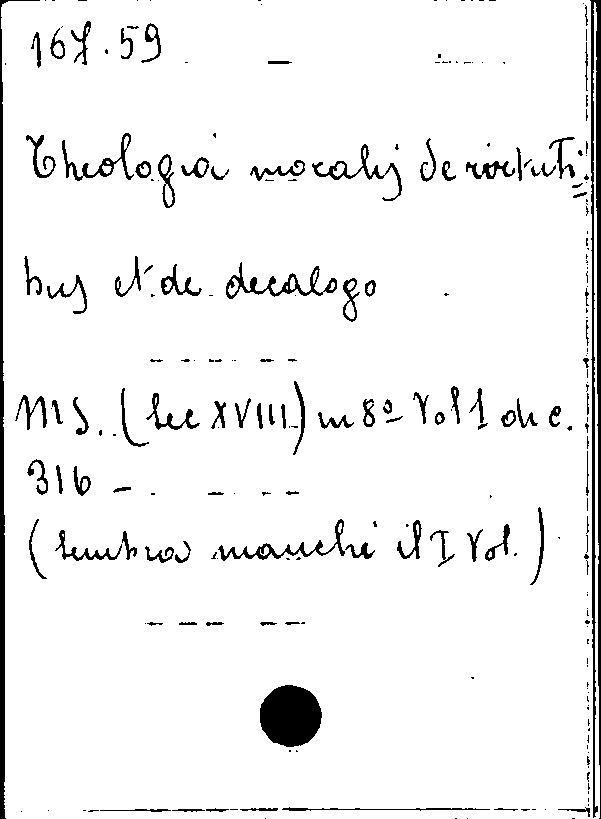 167.59
Theologia moralis de virtuti=
bus et de decalogo
MS. (Sec XVIII) in 8º Vol 1 di c.
316 -
(sembra manchi il I Vol.)